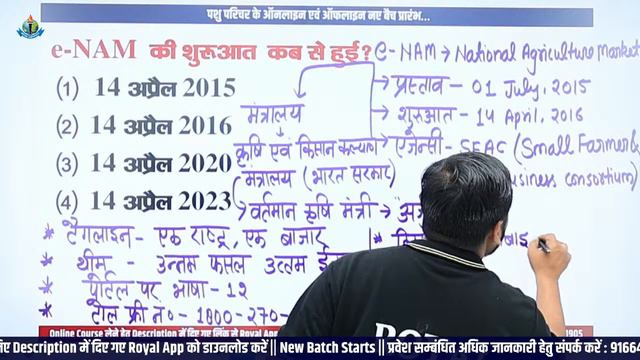 पशु परिचर के ऑनलाइन एवं ऑफलाइन नए बैच प्रारंभ...
e-NAM की शुरूआत कब से हुई?
e-NAM → National Agriculture Market
(1) 14 अप्रैल 2015
→ प्रस्ताव - 01 July, 2015
(2) 14 अप्रैल 2016
मंत्रालय
→ शुरूआत - 14 April, 2016
(3) 14 अप्रैल 2020
कृषि एवं किसान कल्याण
→ एजेन्सी - SFAC (Small Farmer
मंत्रालय (भारत सरकार)
Business consortium)
(4) 14 अप्रैल 2023
→ वर्तमान कृषि मंत्री →
* टैगलाइन - एक राष्ट्र, एक बाजार
* थीम - उन्तम फसल उत्तम
* पोर्टल पर भाषा - 12
* टोल फ्री नं० - 1800-270-
Online Course लेने हेतु Description में दिए गए लिंक से Royal App
1905
Description में दिए गए Royal App को डाउनलोड करें || New Batch Starts || प्रवेश सम्बंधित अधिक जानकारी हेतु संपर्क करें : 9166